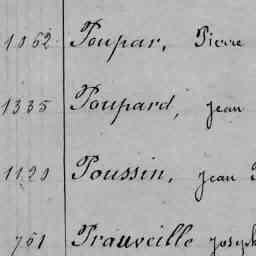 1062 Poupar, Pierre
1335 Poupard, jean
1120 Poussin, jean
761 Prauveille joseph